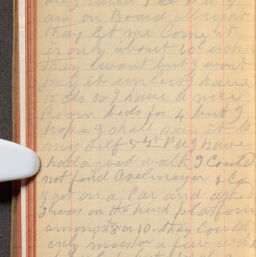 am on Board alright
they let me Come it
is only about 60c extra
they want but I wont
pay it unless I have
to do so I have a nice
Room beds for 4 but I
hope I shall have it to
my self 5-45 P.M I have
had a good walk I Could
not find Aselmeyer & Co
I got on a Car and
I was on the hind platform
amongst 8 or 10. they Could
only move a few